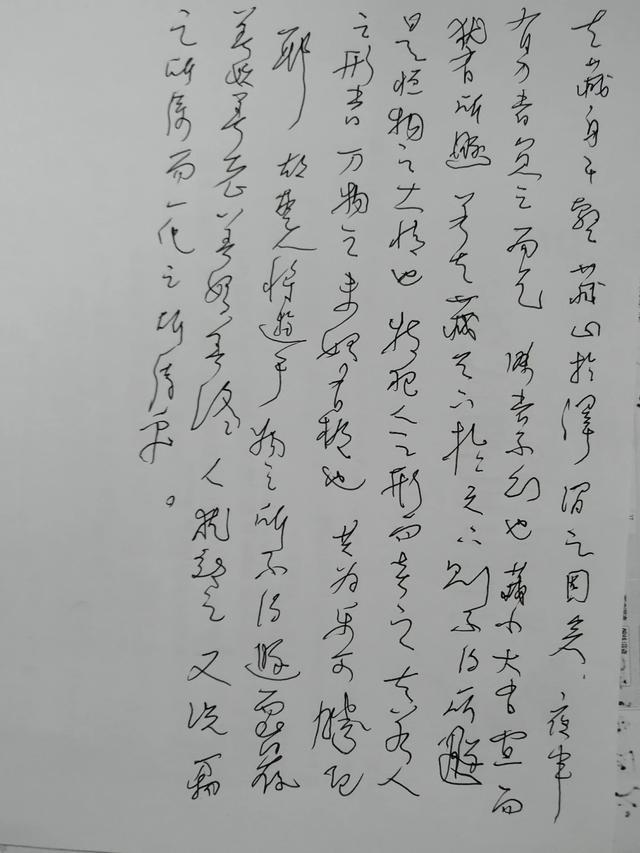 夫藏舟于壑 藏山於泽 谓之固矣 夜半
有力者负之而走 昧者不知也 藏小大有宜而
犹有所遁 若夫藏天下於天下则不得所遁
是恒物之大情也 特犯人之形而喜之 夫若人
之形者 万物之未始有极也 其为乐可胜计
耶 故圣人将遊乎物之所不得遯而皆存
善妖善老 善始善终 人犹效之 又况萬
之所系而一化之所待乎。